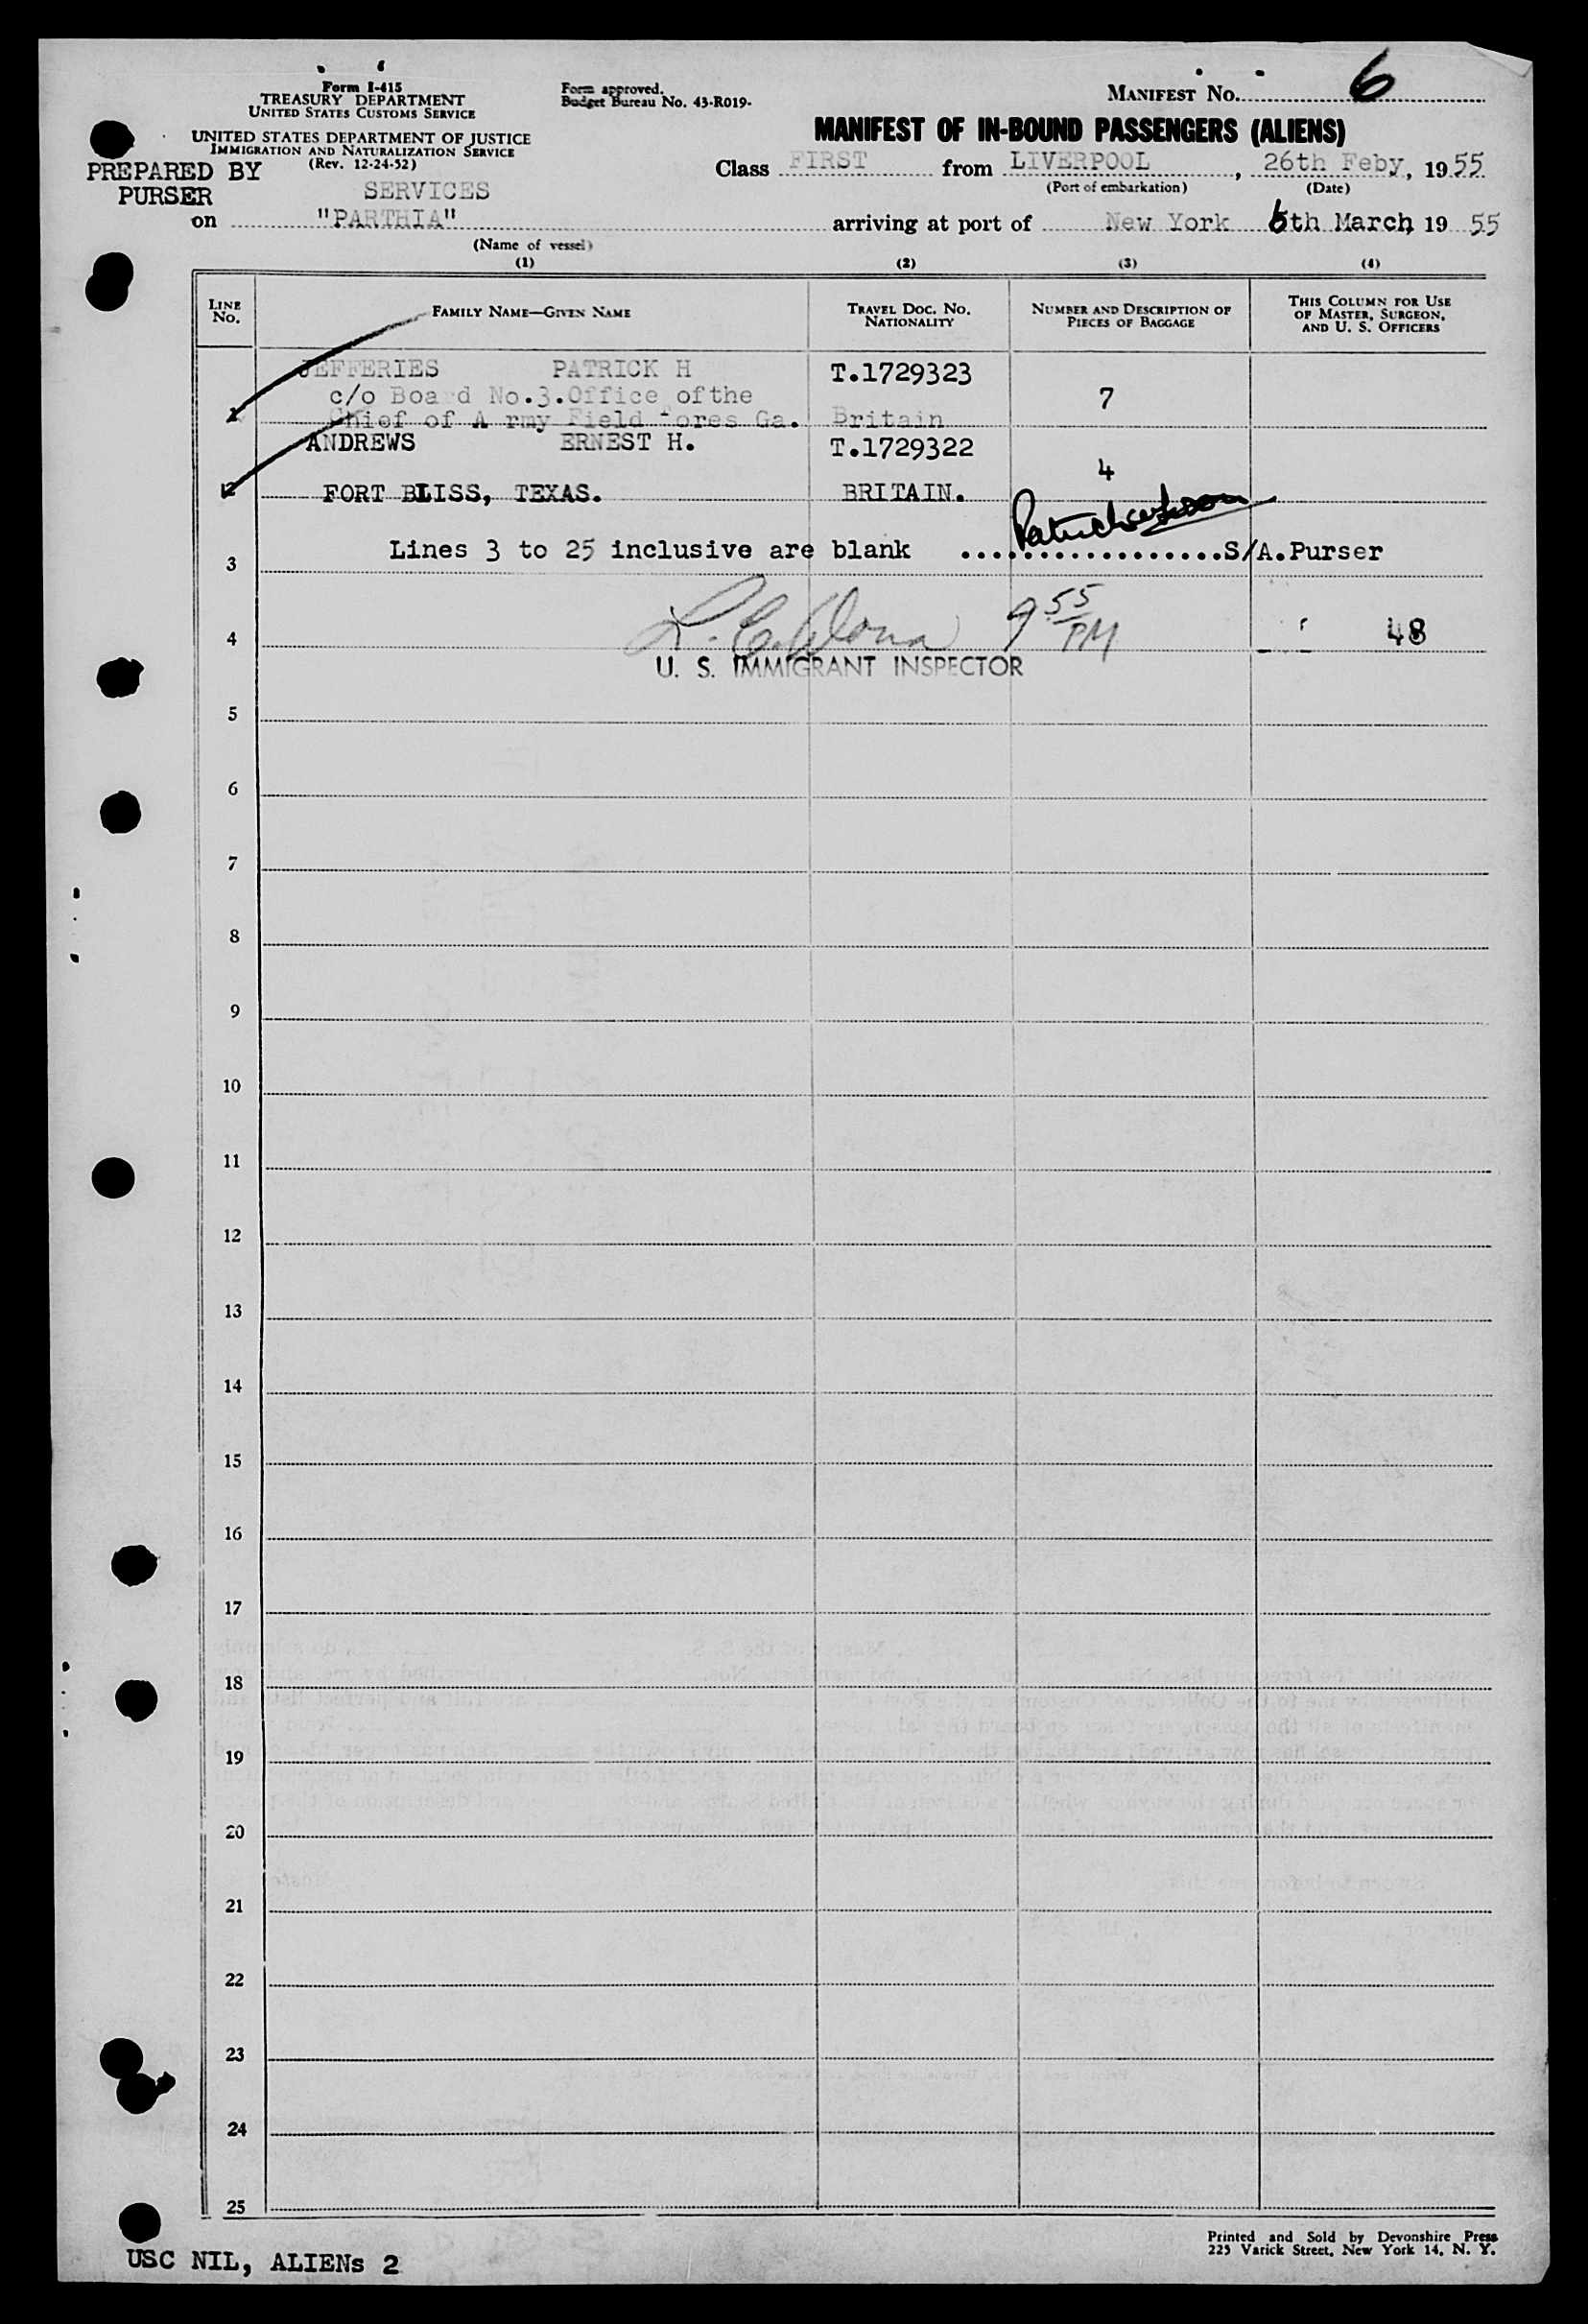 Form I-415
TREASURY DEPARTMENT
UNITED STATES CUSTOMS SERVICE
UNITED STATES DEPARTMENT OF JUSTICE
IMMIGRATION AND NATURALIZATION SERVICE
(Rev. 12-24-52)
PREPARED BY
PURSER
Form approved.
Budget Bureau No. 43-R019.
MANIFEST No. 6
MANIFEST OF IN-BOUND PASSENGERS (ALIENS)
Class FIRST from LIVERPOOL, 26th Feby, 1955
(Port of embarkation) (Date)
SERVICES
on "PARTHIA" arriving at port of New York 6th March, 1955
(Name of vessel)
(1) (2) (3) (4)
LINE No. FAMILY NAME—GIVEN NAME TRAVEL DOC. NO. NATIONALITY NUMBER AND DESCRIPTION OF PIECES OF BAGGAGE THIS COLUMN FOR USE OF MASTER, SURGEON, AND U. S. OFFICERS
JEFFERIES PATRICK H T.1729323
c/o Boa d No.3.Office of the 7
1 Chief of A rmy Field Fores Ga. Britain
ANDREWS ERNEST H. T.1729322
4
2 FORT BLISS, TEXAS. BRITAIN.
3 Lines 3 to 25 inclusive are blank ..................S/A.Purser
4 9 55 PM 48
U. S. IMMIGRANT INSPECTOR
5
6
7
8
9
10
11
12
13
14
15
16
17
18
19
20
21
22
23
24
25
Printed and Sold by Devonshire Press
225 Varick Street, New York 14, N. Y.
USC NIL, ALIENs 2